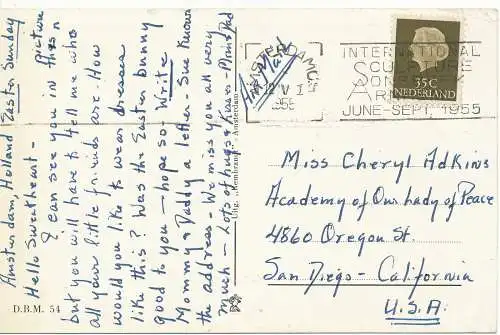 Amsterdam, Holland Easter Sunday
Hello Sweetheart -
I can see you in this picture
but you will have to tell me who
all your little friends are. How
would you like to wear dresses
like this? Was the Easter bunny
good to you - hope so. Write
Mommy & Daddy a letter. Sue knows
the address. We miss you all very
much - Lots of hugs & kisses -
D.B.M. 54
Uitg. Rembrandt, Amsterdam
Air Mail
AMSTERDAM C.S.
1955
INTERNATIONAL
SCULPTURE
ARNHEM
JUNE-SEPT. 1955
35C
NEDERLAND
Miss Cheryl Adkins
Academy of Our Lady of Peace
4860 Oregon St.
San Diego - California
U.S.A.